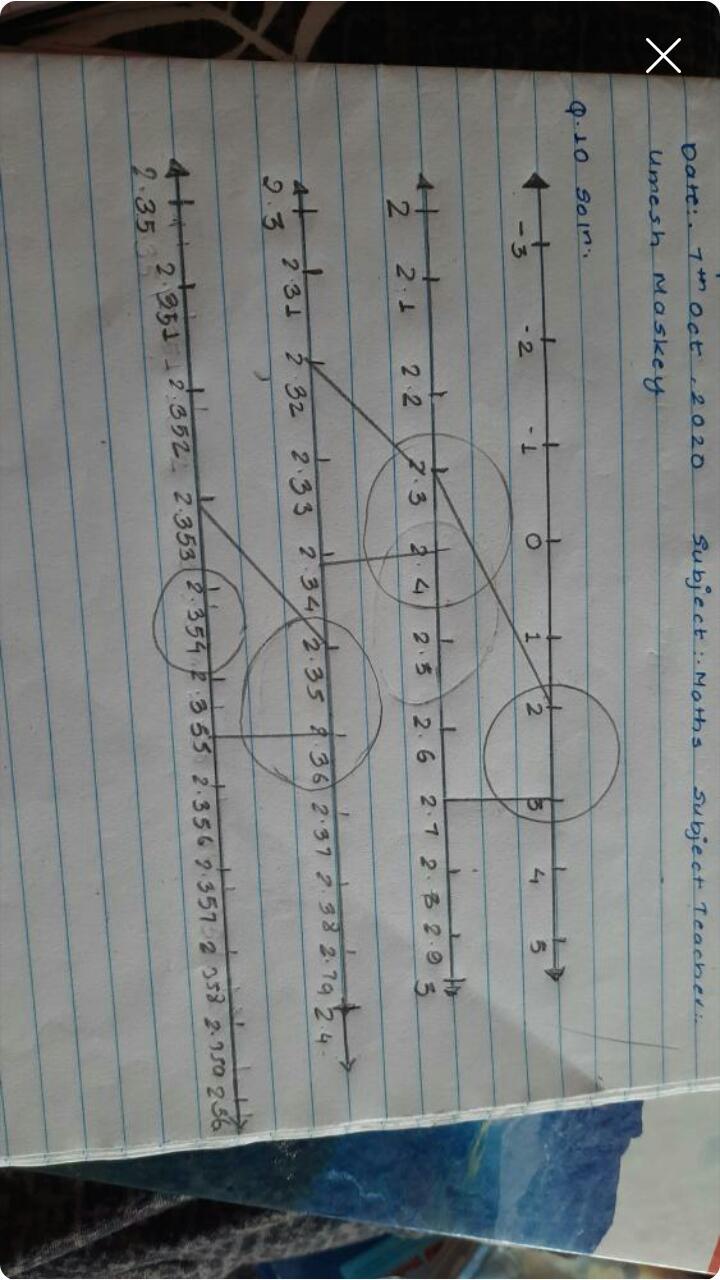 Date:. 7th Oct, 2020 Subject:. Maths Subject Teacher:.
Umesh Maskey
Q.10 Soln:
-3 -2 -1 0 1 2 3 4 5
2 2.1 2.2 2.3 2.4 2.5 2.6 2.7 2.8 2.9 3
2.3 2.31 2.32 2.33 2.34 2.35 2.36 2.37 2.38 2.4
2.35 2.351 2.352 2.353 2.354 2.355 2.356 2.357 2.358 2.36